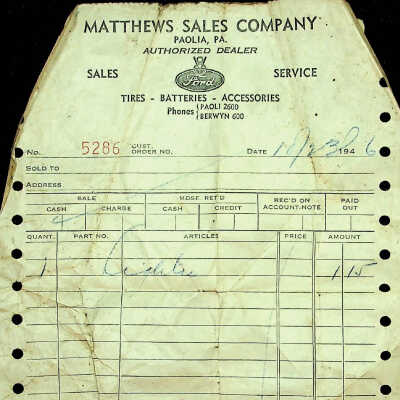 MATTHEWS SALES COMPANY
PAOLIA, PA.
AUTHORIZED DEALER
SALES Ford SERVICE
TIRES - BATTERIES - ACCESSORIES
Phones { PAOLI 2600
BERWYN 600
No. 5286 CUST. ORDER NO. DATE 1946
SOLD TO
ADDRESS
SALE MDSE RET'D REC'D ON ACCOUNT-NOTE PAID OUT
CASH CHARGE CASH CREDIT
QUANT. PART NO. ARTICLES PRICE AMOUNT
1 1 15